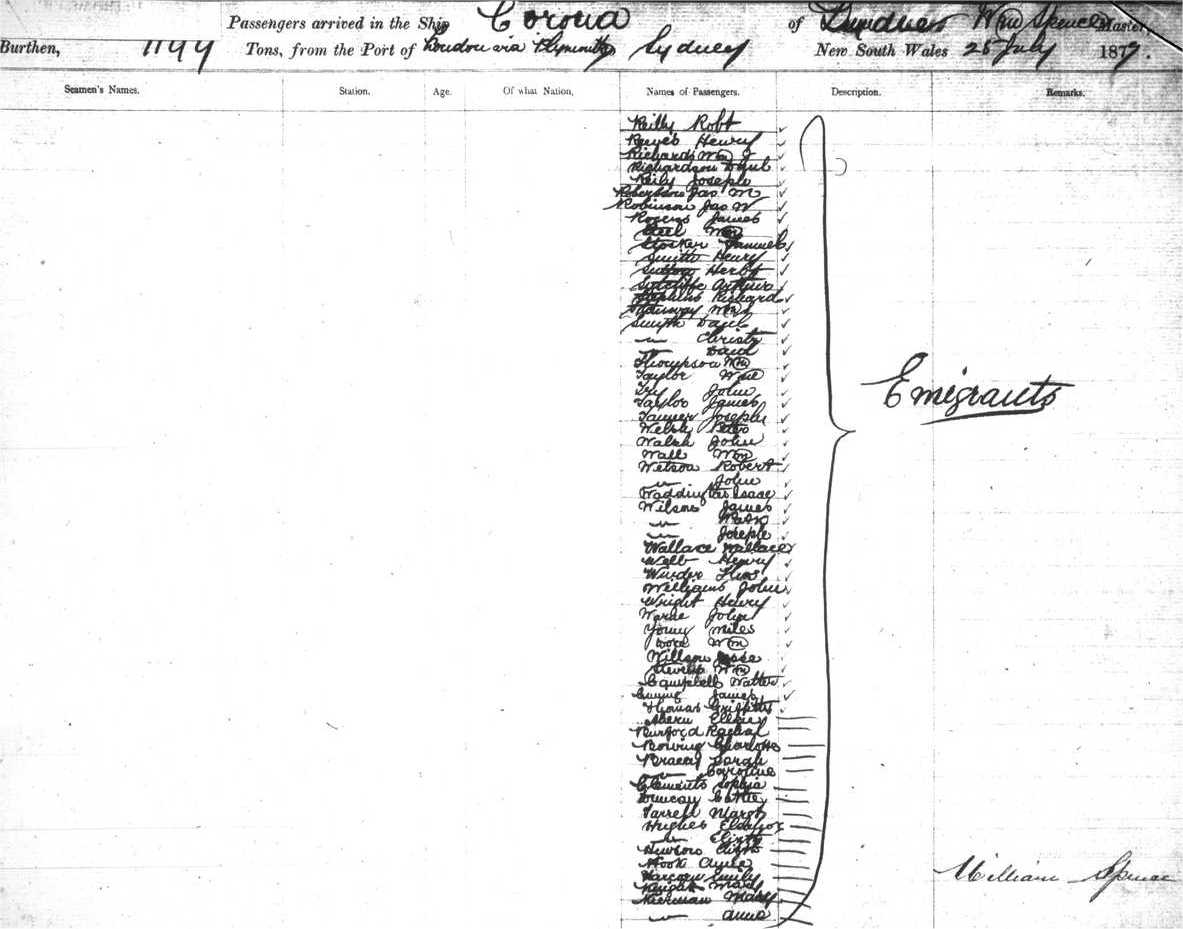 Passengers arrived in the Ship Corona of Dundee Wm Spence Master,
Burthen, 1199 Tons, from the Port of London via Plymouth Sydney New South Wales 28 July 1879.
Seamen's Names. Station. Age. Of what Nation, Names of Passengers. Description. Remarks.
Reilly Robt
Reeves Henry
Richards Wm J
Richardson Danl
Reily Joseph
Robertson Jas M
Robinson Jas W
Rogers James
Steel Wm
Stocker Samuel
Smith Henry
Herbt
Sutcliffe Arthur
Richard
Wm
Smyth Danl
" Christr
" David
Thompson Wm
Taylor Wm
Try John
Taylor James
Tanner Joseph
Welsh Peter
Walsh John
Wall Wm
Watson Robert
" John
Waddington Isaac
Wilson James
"
" Joseph
Wallace Wallace
Webb Henry
Winder Thos
Williams John
Wright Henry
Warne John
Young Miles
Wm
Willson
Stevens Wm
Campbell Walter
James
Thomas Griffiths
Ahern Ellen
Burford Rachal
Bowring Charlotte
Bracey Sarah
" Caroline
Clements Sophia
Duncan
Farrell Margt
Hughes Eleanor
" Elizth
Hook Annie
Emily
Knight Mary
Kiernan Mary
" Anne
Emigrants
William Spence